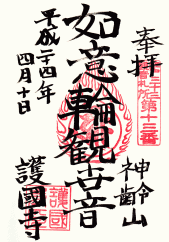 奉拝
第十三番
如意輪観世音
神齢山
護國寺
平成二十四年
四月十日